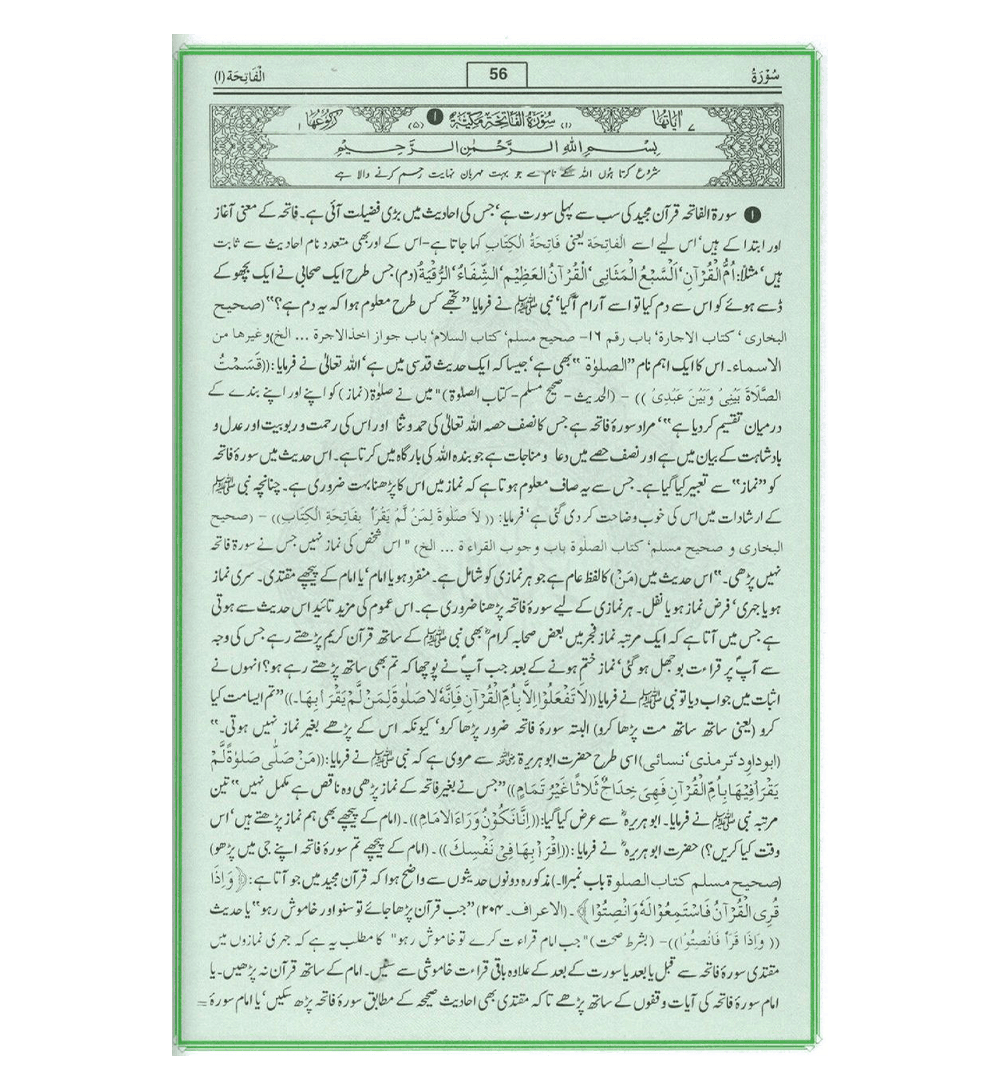 سُوْرَةُ 56 اَلْفَاتِحَة (۱)
۷ اٰیَاتُهَا (۱) سُوْرَةُ الْفَاتِحَةِ مَکِّیَّةٌ ۱ (۵) رُکُوْعُهَا ۱
بِسْمِ اللهِ الرَّحْمٰنِ الرَّحِیْمِ
شروع کرتا ہوں اللہ کے نام سے جو بہت مہربان نہایت رحم کرنے والا ہے
۱ سورۃ الفاتحہ قرآن مجید کی سب سے پہلی سورت ہے‘ جس کی احادیث میں بڑی فضیلت آئی ہے۔ فاتحہ کے معنی آغاز
اور ابتدا کے ہیں‘ اس لیے اسے الفاتحة یعنی فاتحةُ الکتاب کہا جاتا ہے۔ اس کے اور بھی متعدد نام احادیث سے ثابت
ہیں‘ مثلاً: اُمُّ الْقُرْآنِ‘ اَلسَّبْعُ الْمَثَانِی‘ اَلْقُرْآنُ الْعَظِیْم‘ الشِّفَاءُ‘ الرُّقْیَةُ (دم) جس طرح ایک صحابی نے ایک بچھو کے
ڈسے ہوئے کو اس سے دم کیا تو اسے آرام آگیا‘ نبی ﷺ نے فرمایا ”تجھے کس طرح معلوم ہوا کہ یہ دم ہے؟“ (صحیح
البخاری‘ کتاب الاجارة‘ باب رقم ۱۶۔ صحیح مسلم‘ کتاب السلام‘ باب جواز اخذ الاجرة ... الخ) وغیرها من
الاسماء۔ اس کا ایک اہم نام ”الصلوٰة“ بھی ہے‘ جیسا کہ ایک حدیث قدسی میں ہے‘ اللہ تعالیٰ نے فرمایا: ((قَسَمْتُ
الصَّلَاةَ بَیْنِیْ وَبَیْنَ عَبْدِیْ )) ۔ (الحدیث۔ صحیح مسلم۔ کتاب الصلوٰة) "میں نے صلوٰة (نماز) کو اپنے اور اپنے بندے کے
درمیان تقسیم کر دیا ہے“‘ مراد سورۂ فاتحہ ہے جس کا نصف حصہ اللہ تعالیٰ کی حمد و ثنا اور اس کی رحمت و ربوبیت اور عدل و
بادشاہت کے بیان میں ہے اور نصف حصے میں دعا و مناجات ہے جو بندہ اللہ کی بارگاہ میں کرتا ہے۔ اس حدیث میں سورۂ فاتحہ
کو ”نماز“ سے تعبیر کیا گیا ہے۔ جس سے یہ صاف معلوم ہوتا ہے کہ نماز میں اس کا پڑھنا بہت ضروری ہے۔ چنانچہ نبی ﷺ
کے ارشادات میں اس کی خوب وضاحت کر دی گئی ہے‘ فرمایا: ((لَا صَلٰوةَ لِمَنْ لَّمْ یَقْرَأْ بِفَاتِحَةِ الْکِتَابِ)) ۔ (صحیح
البخاری و صحیح مسلم‘ کتاب الصلوٰة باب وجوب القراءة ... الخ) " اس شخص کی نماز نہیں جس نے سورۂ فاتحہ
نہیں پڑھی۔“ اس حدیث میں (مَنْ) کا لفظ عام ہے جو ہر نمازی کو شامل ہے۔ منفرد ہو یا امام‘ یا امام کے پیچھے مقتدی۔ سری نماز
ہو یا جہری‘ فرض نماز ہو یا نفل۔ ہر نمازی کے لیے سورۂ فاتحہ پڑھنا ضروری ہے۔ اس عموم کی مزید تائید اس حدیث سے ہوتی
ہے جس میں آتا ہے کہ ایک مرتبہ نماز فجر میں بعض صحابہ کرامؓ بھی نبی ﷺ کے ساتھ قرآن کریم پڑھتے رہے جس کی وجہ
سے آپؐ پر قراءت بوجھل ہو گئی‘ نماز ختم ہونے کے بعد جب آپؐ نے پوچھا کہ تم بھی ساتھ پڑھتے رہے ہو؟ انہوں نے
اثبات میں جواب دیا تو نبی ﷺ نے فرمایا ((لَا تَفْعَلُوْا اِلَّا بِاُمِّ الْقُرْآنِ فَاِنَّهُ لَا صَلٰوةَ لِمَنْ لَّمْ یَقْرَأْ بِهَا۔)) ”تم ایسا مت کیا
کرو (یعنی ساتھ ساتھ مت پڑھا کرو) البتہ سورۂ فاتحہ ضرور پڑھا کرو‘ کیونکہ اس کے پڑھے بغیر نماز نہیں ہوتی۔“
(ابوداود‘ ترمذی‘ نسائی) اسی طرح حضرت ابوہریرۃ رضی اللہ عنہ سے مروی ہے کہ نبی ﷺ نے فرمایا: ((مَنْ صَلّٰی صَلٰوةً لَّمْ
یَقْرَأْ فِیْهَا بِاُمِّ الْقُرْآنِ فَهِیَ خِدَاجٌ ثَلَاثًا غَیْرُ تَمَامٍ)) ”جس نے بغیر فاتحہ کے نماز پڑھی وہ ناقص ہے مکمل نہیں“ تین
مرتبہ نبی ﷺ نے فرمایا۔ ابوہریرہؓ سے عرض کیا گیا: ((اِنَّا نَکُوْنُ وَرَاءَ الْاِمَامِ))۔ (امام کے پیچھے بھی ہم نماز پڑھتے ہیں‘ اس
وقت کیا کریں؟) حضرت ابوہریرہؓ نے فرمایا: ((اِقْرَأْ بِهَا فِیْ نَفْسِكَ))۔ (امام کے پیچھے تم سورۂ فاتحہ اپنے جی میں پڑھو)
(صحیح مسلم کتاب الصلوة باب نمبر۱۱۔) مذکورہ دونوں حدیثوں سے واضح ہوا کہ قرآن مجید میں جو آتا ہے: ﴿ وَاِذَا
قُرِئَ الْقُرْآنُ فَاسْتَمِعُوْا لَهٗ وَاَنْصِتُوْا ﴾۔ (الاعراف۔ ۲۰۴) ”جب قرآن پڑھا جائے تو سنو اور خاموش رہو“ یا حدیث
(( وَاِذَا قَرَأَ فَانْصِتُوْا))۔ (بشرط صحت) "جب امام قراءت کرے تو خاموش رہو" کا مطلب یہ ہے کہ جہری نمازوں میں
مقتدی سورۂ فاتحہ سے قبل یا بعد یا سورت کے بعد کے علاوہ باقی قراءت خاموشی سے سنیں۔ امام کے ساتھ قرآن نہ پڑھیں۔ یا
امام سورۂ فاتحہ کی آیات وقفوں کے ساتھ پڑھے تاکہ مقتدی بھی احادیث صحیحہ کے مطابق سورۂ فاتحہ پڑھ سکیں‘ یا امام سورۂ =